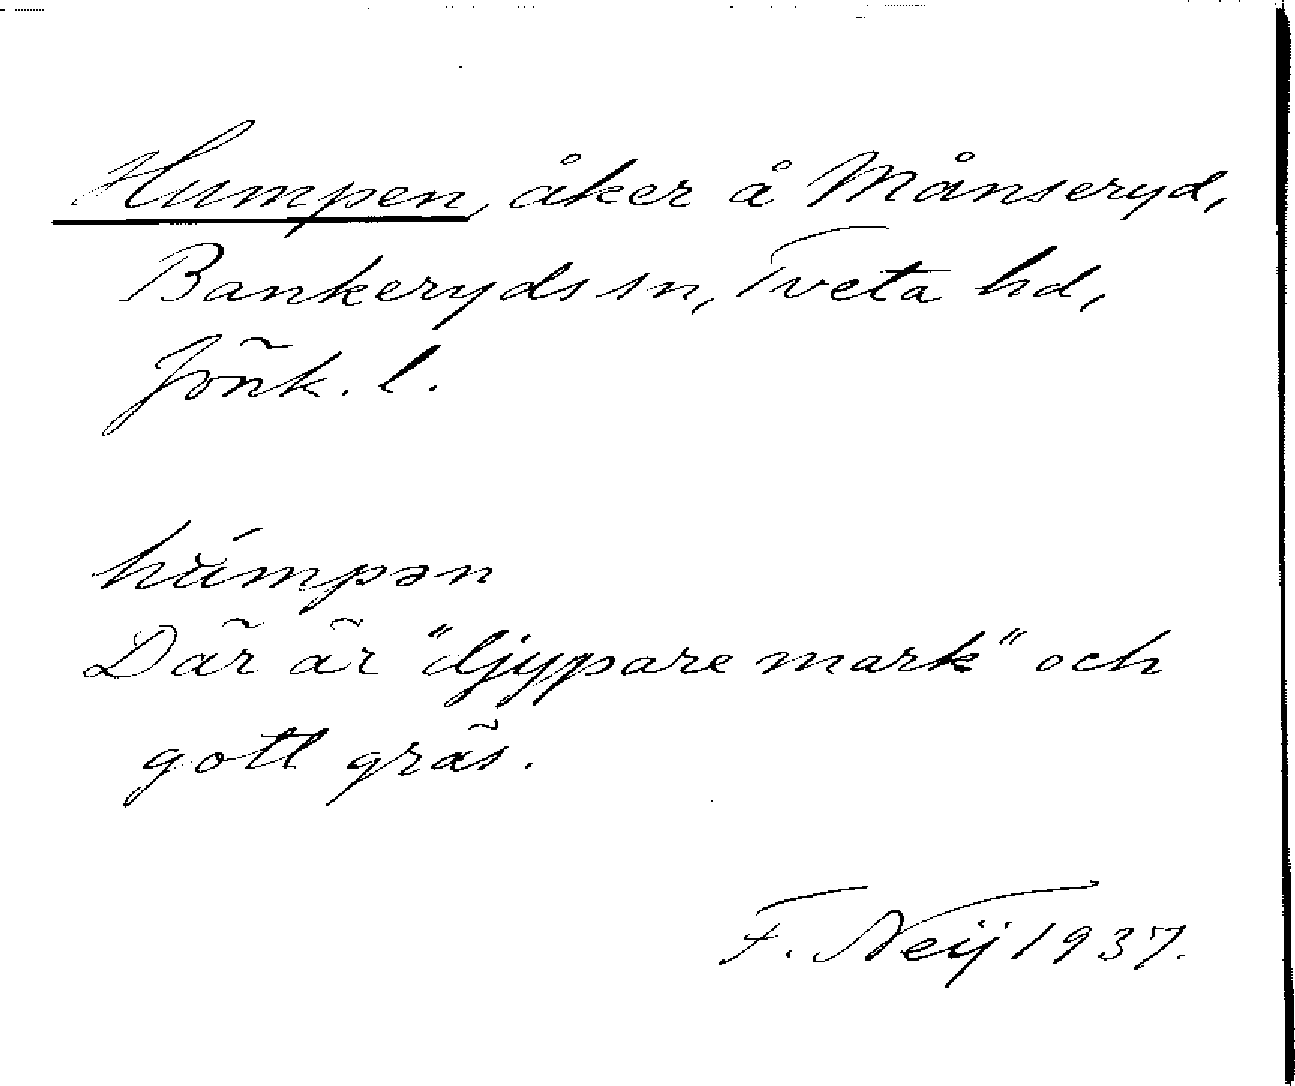 Humpen, åker å Månseryd,
Bankeryds sn, Tveta hd,
Jönk. l.
húmpən
Där är "djypare mark" och
gott gräs.
F. Neij 1937.